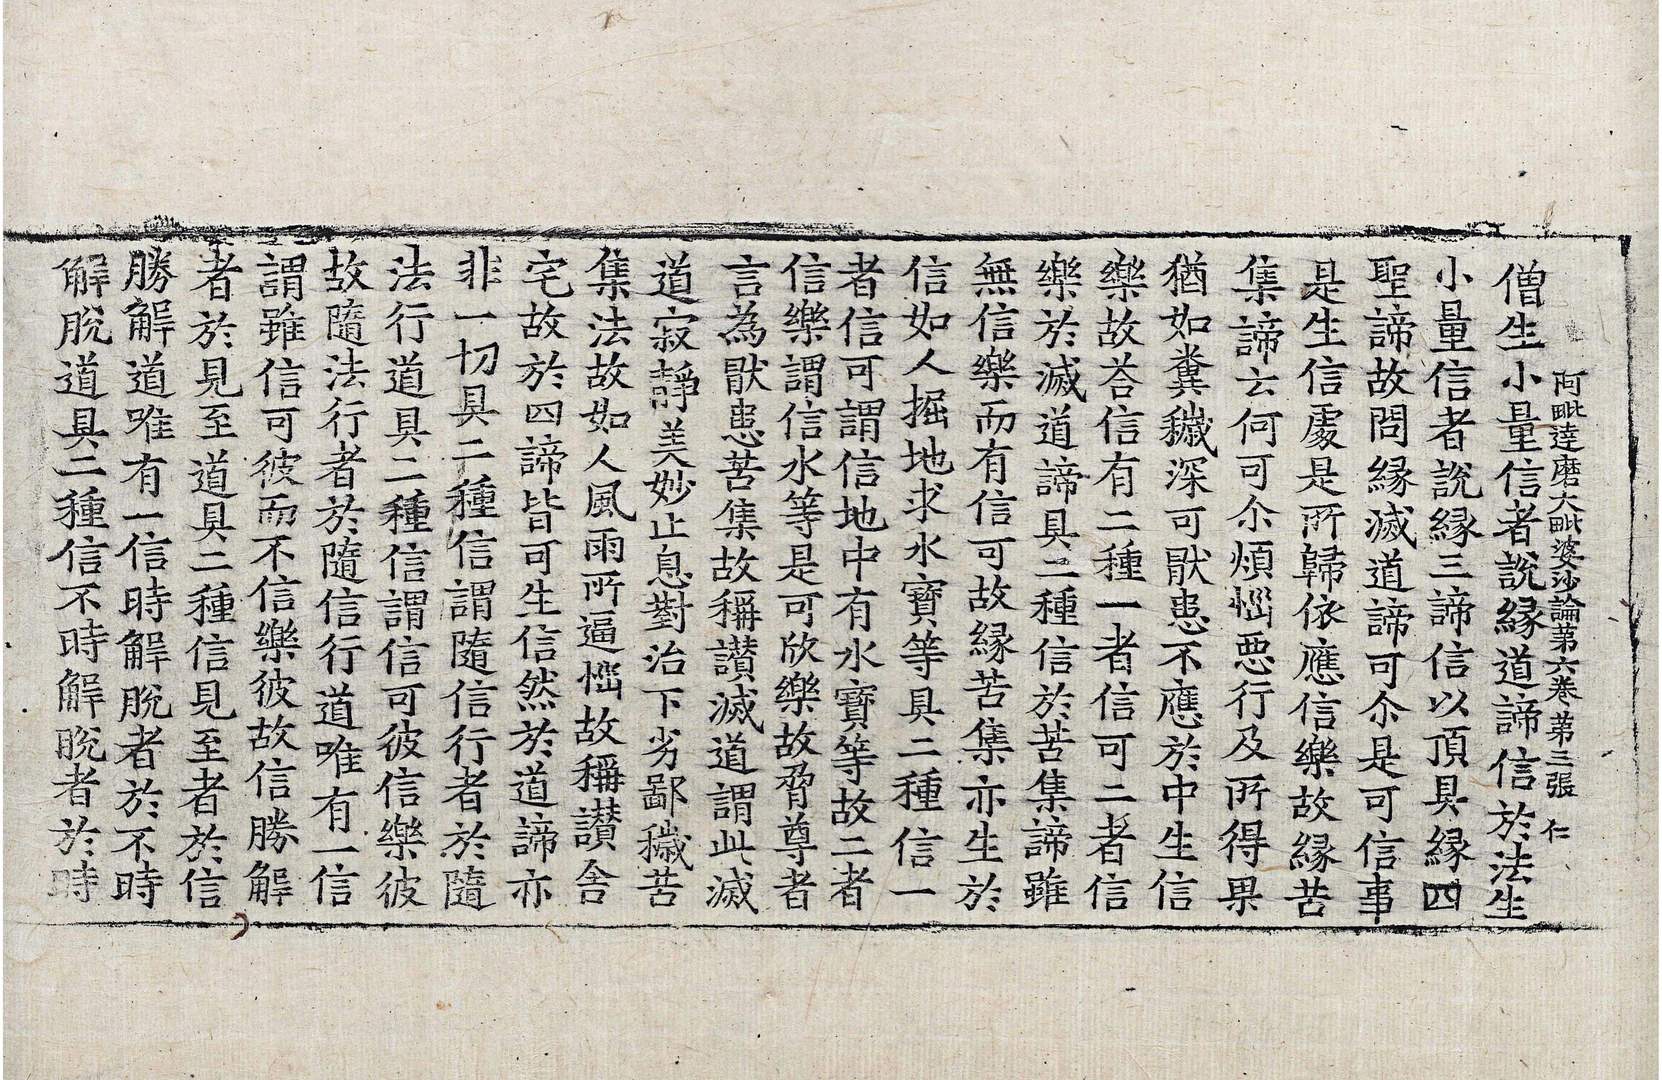 阿毗達磨大毗婆沙論第六卷 第三張 仁
僧生小量信者說緣道諦信於法生
小量信者說緣三諦信以頂具緣四
聖諦故問緣滅道諦可尒是可信事
是生信處是所歸依應信樂故緣苦
集諦云何可尒煩惱惡行及所得果
猶如糞穢深可猒患不應於中生信
樂故荅信有二種一者信可二者信
樂於滅道諦具二種信於苦集諦雖
無信樂而有信可故緣苦集亦生於
信如人掘地求水寶等具二種信一
者信可謂信地中有水寶等故二者
信樂謂信水等是可欣樂故脅尊者
言為猒患苦集故稱讃滅道謂此滅
道寂靜美妙止息對治下劣鄙穢苦
集法故如人風雨所逼惱故稱讃舍
宅故於四諦皆可生信然於道諦亦
非一切具二種信謂隨信行者於隨
法行道具二種信謂信可彼信樂彼
故隨法行者於隨信行道唯有一信
謂雖信可彼而不信樂彼故信勝解
者於見至道具二種信見至者於信
勝解道唯有一信時解脫者於不時
解脫道具二種信不時解脫者於時